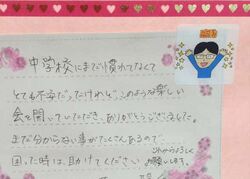 中学校にまだ慣れてなくて
とても不安だったけれど、このような楽しい
会を開いていただき、ありがとうございました。
まだ分からない事がたくさんあるので、
困った時は助けてください
これからよろしく
お願いします。